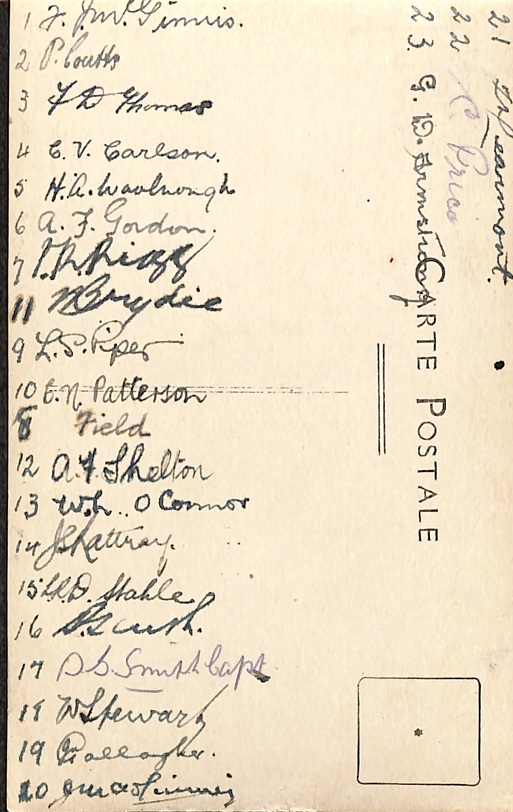 1 F. J. McGinnis.
2 P. Coutts
3 F D Thomas
4 C. V. Carlson.
5 H. A. Woolnough
6 A. F. Gordon.
7
11 Brydie
9 L. S. Piper
10 E. N. Patterson
8 Field
12 A F Shelton
13 W. L. O Connor
14 J Rattray.
15 Stahle
16
17 D. S. Smith Capt
18 W Stewart
19 Gallagher.
20
21 Learmont.
22 Price
23. G. D. Armstrong
CARTE POSTALE